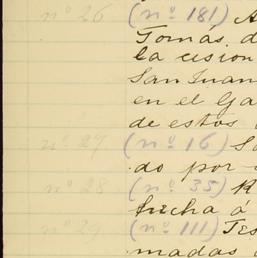 nº 26 (nº 181) A
Tomas. d
la cision
San Juan
en el Ga
de estos
nº 27 (nº 16) Sa
do por
nº 28 (nº 35) R
fecha á
nº 29 (nº 111) Tes
madas